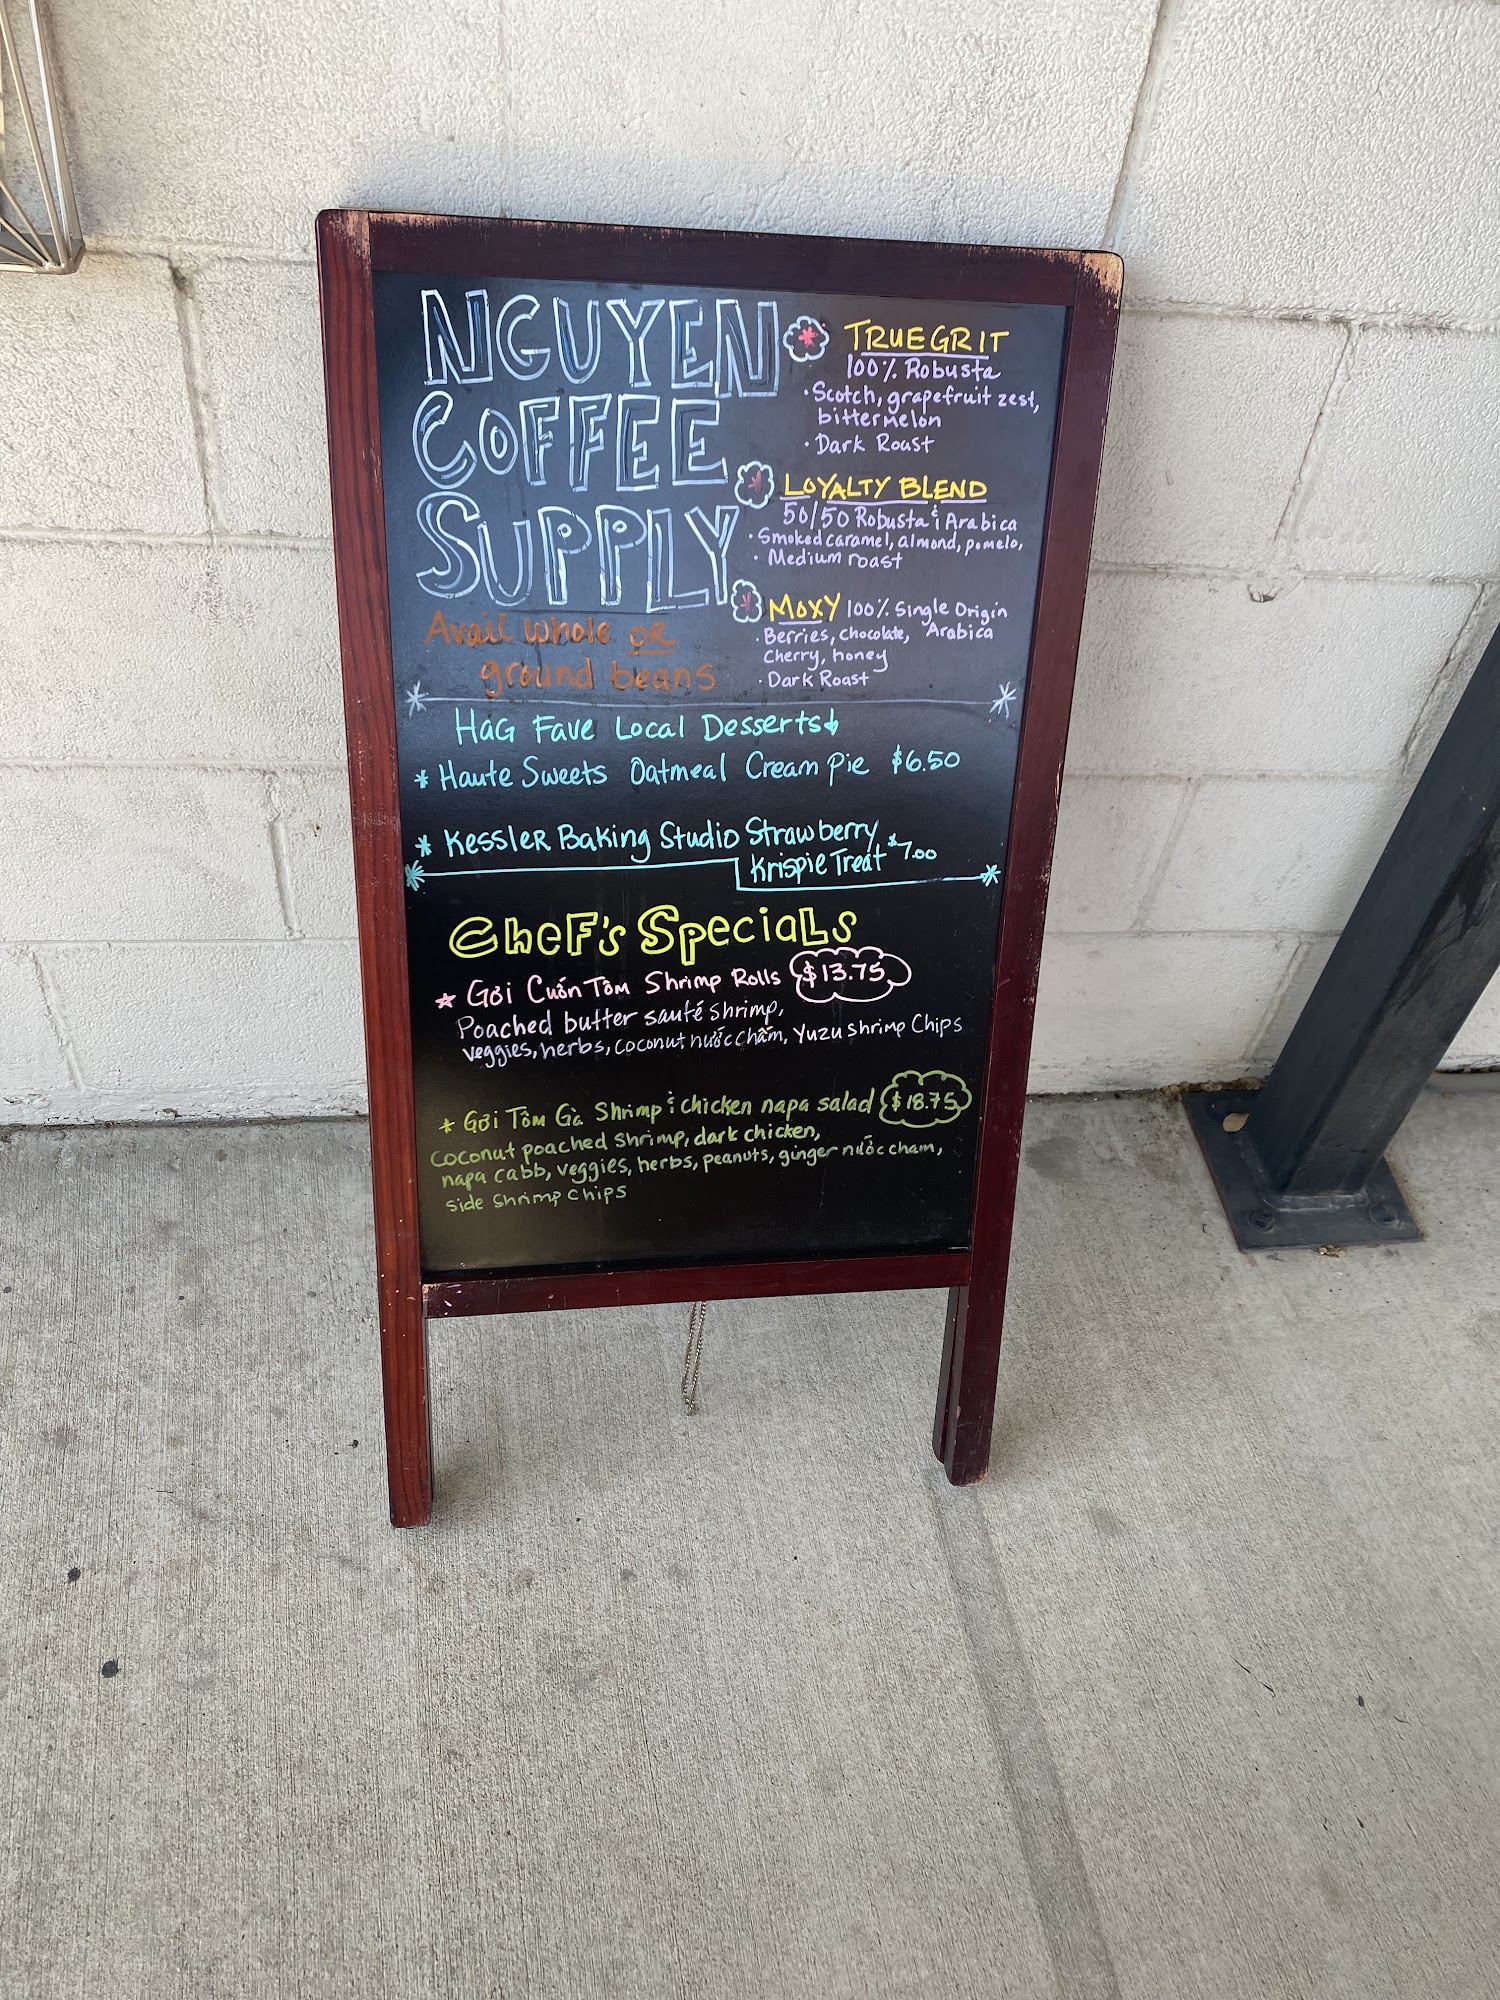 NGUYEN
COFFEE
SUPPLY
Avail whole OR
ground beans
TRUEGRIT
100% Robusta
• Scotch, grapefruit zest,
bittermelon
• Dark Roast
LOYALTY BLEND
50/50 Robusta & Arabica
• Smoked caramel, almond, pomelo,
• Medium roast
MOXY 100% Single Origin
• Berries, chocolate, Arabica
Cherry, honey
• Dark Roast
HaG Fave Local Desserts↓
* Haute Sweets Oatmeal Cream Pie $6.50
* Kessler Baking Studio Strawberry
Krispie Treat $7.00
Chef's Specials
★ Gơi Cuốn Tôm Shrimp Rolls $13.75
Poached butter sauté shrimp,
veggies, herbs, coconut nước chấm, yuzu shrimp chips
* Gơi Tôm Gà Shrimp & chicken napa salad $18.75
coconut poached shrimp, dark chicken,
napa cabb, veggies, herbs, peanuts, ginger nước cham,
side shrimp chips